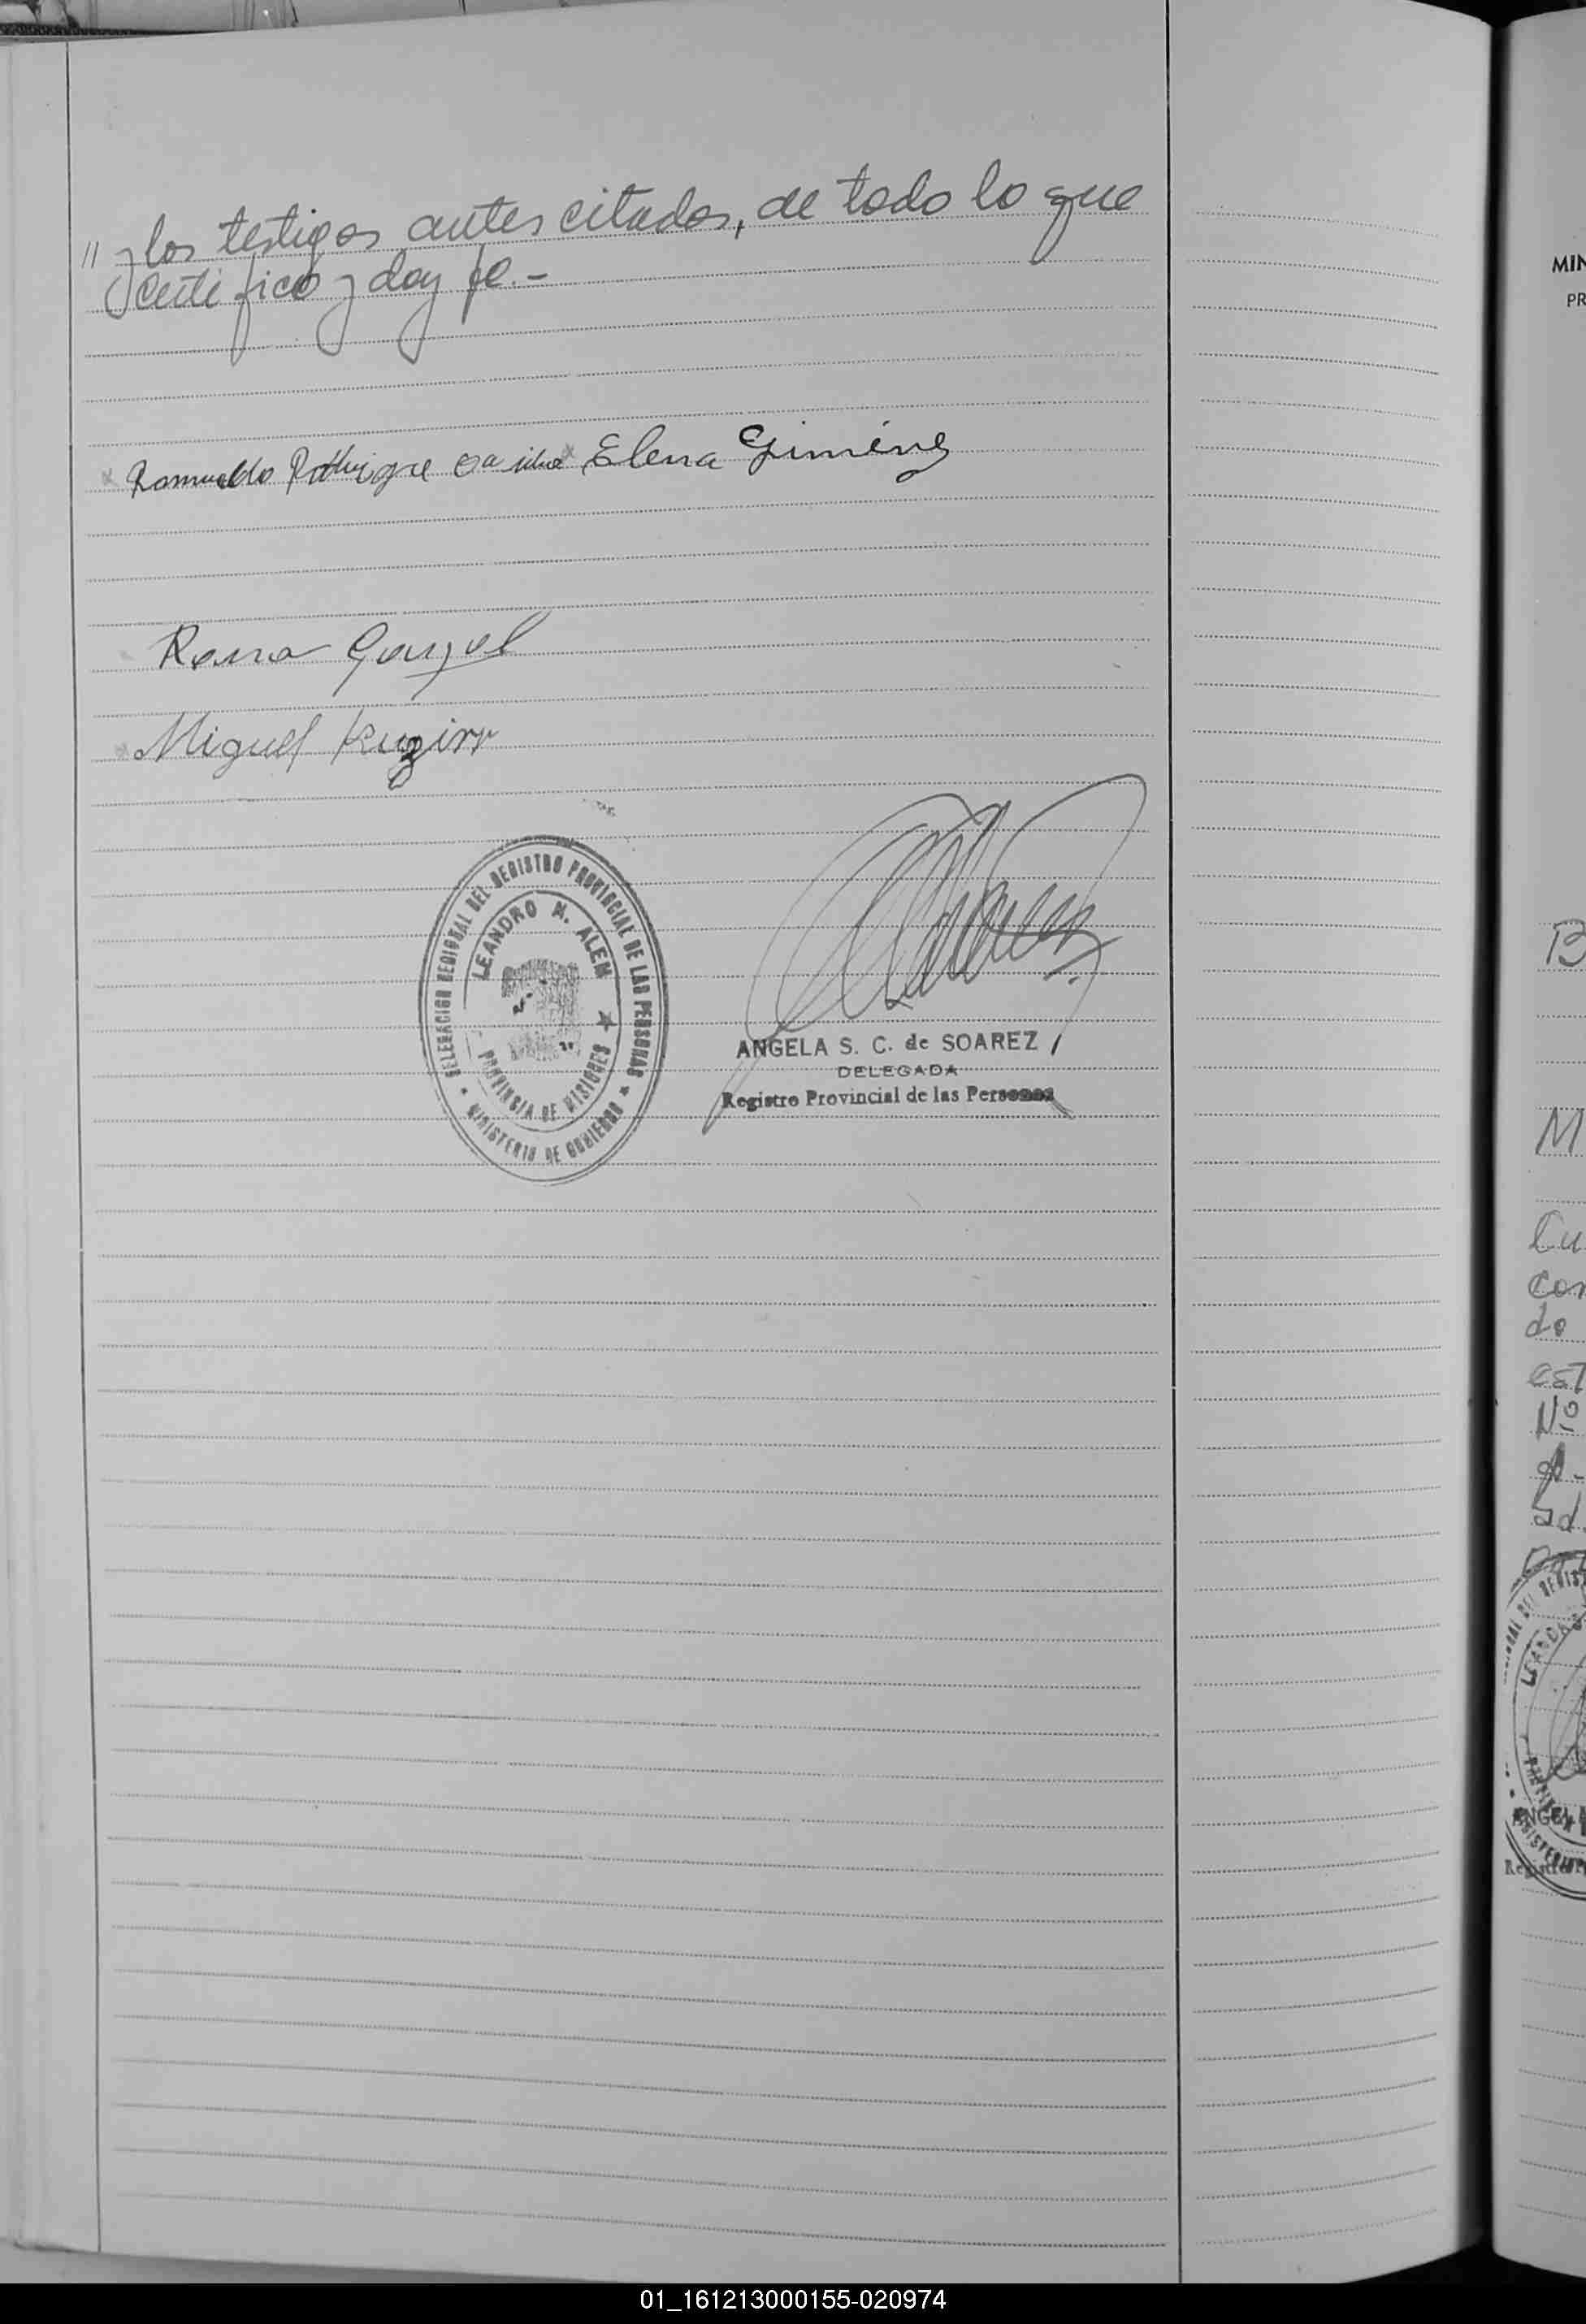 // y los testigos antes citados, de todo lo que
certifico y doy fe.-
Romualdo Elena Giménez
Miguel
DELEGACION REGIONAL DEL REGISTRO PROVINCIAL DE LAS PERSONAS
LEANDRO N. ALEM
PROVINCIA DE MISIONES
MINISTERIO DE GOBIERNO
ANGELA S. C. de SOAREZ
DELEGADA
Registro Provincial de las Personas
MIN
PR
B
M
Cu
con
do
est
Nº
ANGELA
01_161213000155-020974